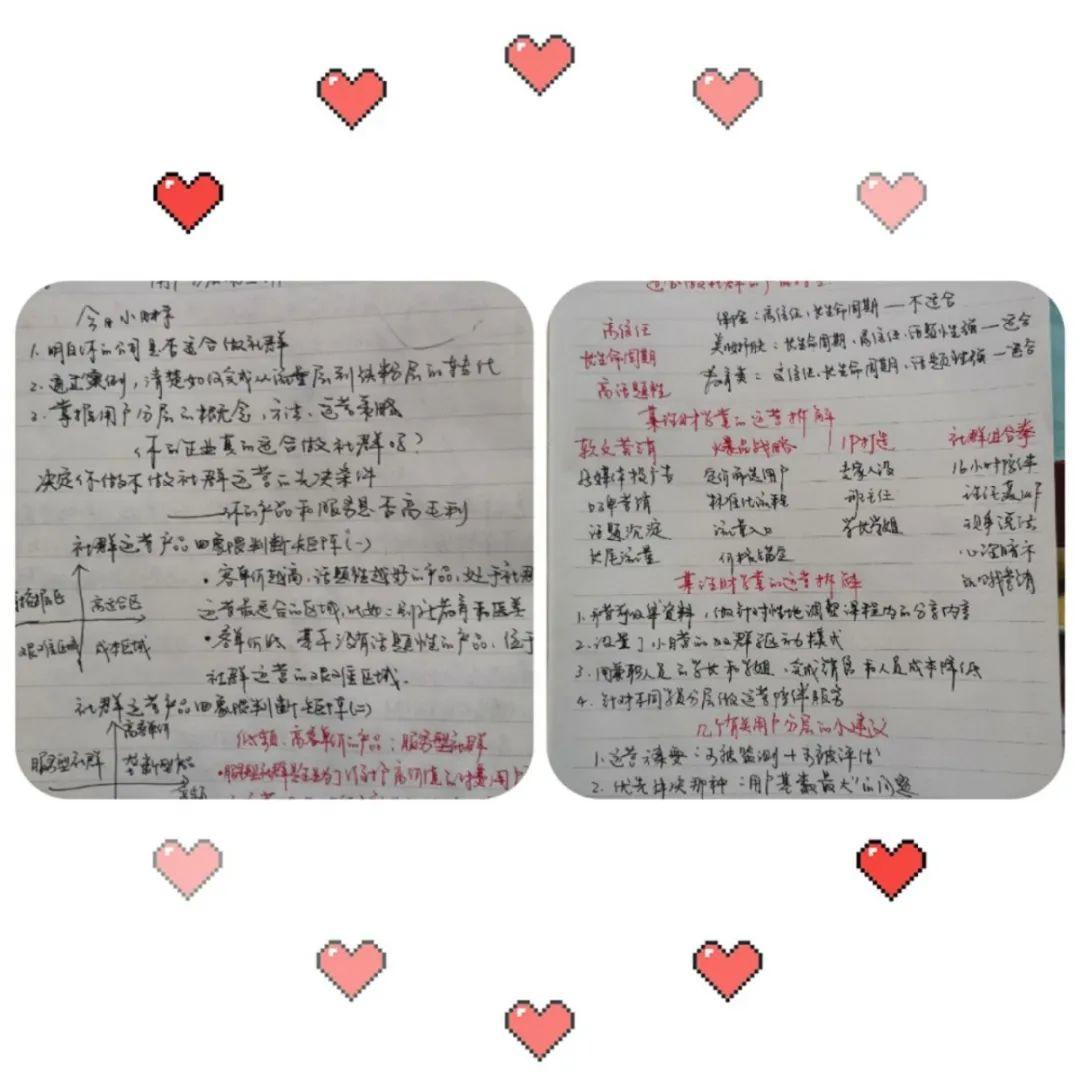 今日小财手
1. 明白你的公司是否适合做社群
2. 通过案例,清楚如何完成从流量层到铁粉层的转化
3. 掌握用户分层的概念,方法、运营策略
你的企业真的适合做社群吗?
决定你做不做社群运营的先决条件
——你的产品和服务是否高毛利
社群运营产品四象限判断矩阵(一)
• 客单价越高,话题性越好的产品,处于社群
运营最适合的区域,比如:别社教育和医美
高适合区
• 客单价低、基本没有话题性的产品,位于
艰难区域 成本区域
社群运营的艰难区域.
社群运营产品四象限判断矩阵(二)
高客单价
低频、高客单价的产品:服务型社群
服务型社群
高信任
长生命周期
高话题性
保险:高信任、长生命周期——不适合
美妆护肤:长生命周期、高信任、话题性强——适合
教育类:高信任、长生命周期、话题性强——适合
某理财学堂的运营拆解
软文营销 爆品战略 IP打造 社群组合拳
自媒体投广告 定价筛选用户 专家人设 16小时陪伴
口碑营销 标准化流程 班主任
话题沉淀 流量入口 学长学姐 现身说法
长尾流量 价格锚定 心理暗示
营销
某理财学堂的运营拆解
1. 开营前收集资料,做针对性地调整课程内的分享内容
2. 设置了小月营的双群驱动模式
3. 用兼职人员的学长和学姐,完成销售和人员成本降低
4. 针对不同学员分层做运营陪伴服务
几个有关用户分层的小建议
1. 运营课要:可被监测+可被评估
2. 优先解决那种“用户基数最大”的问题